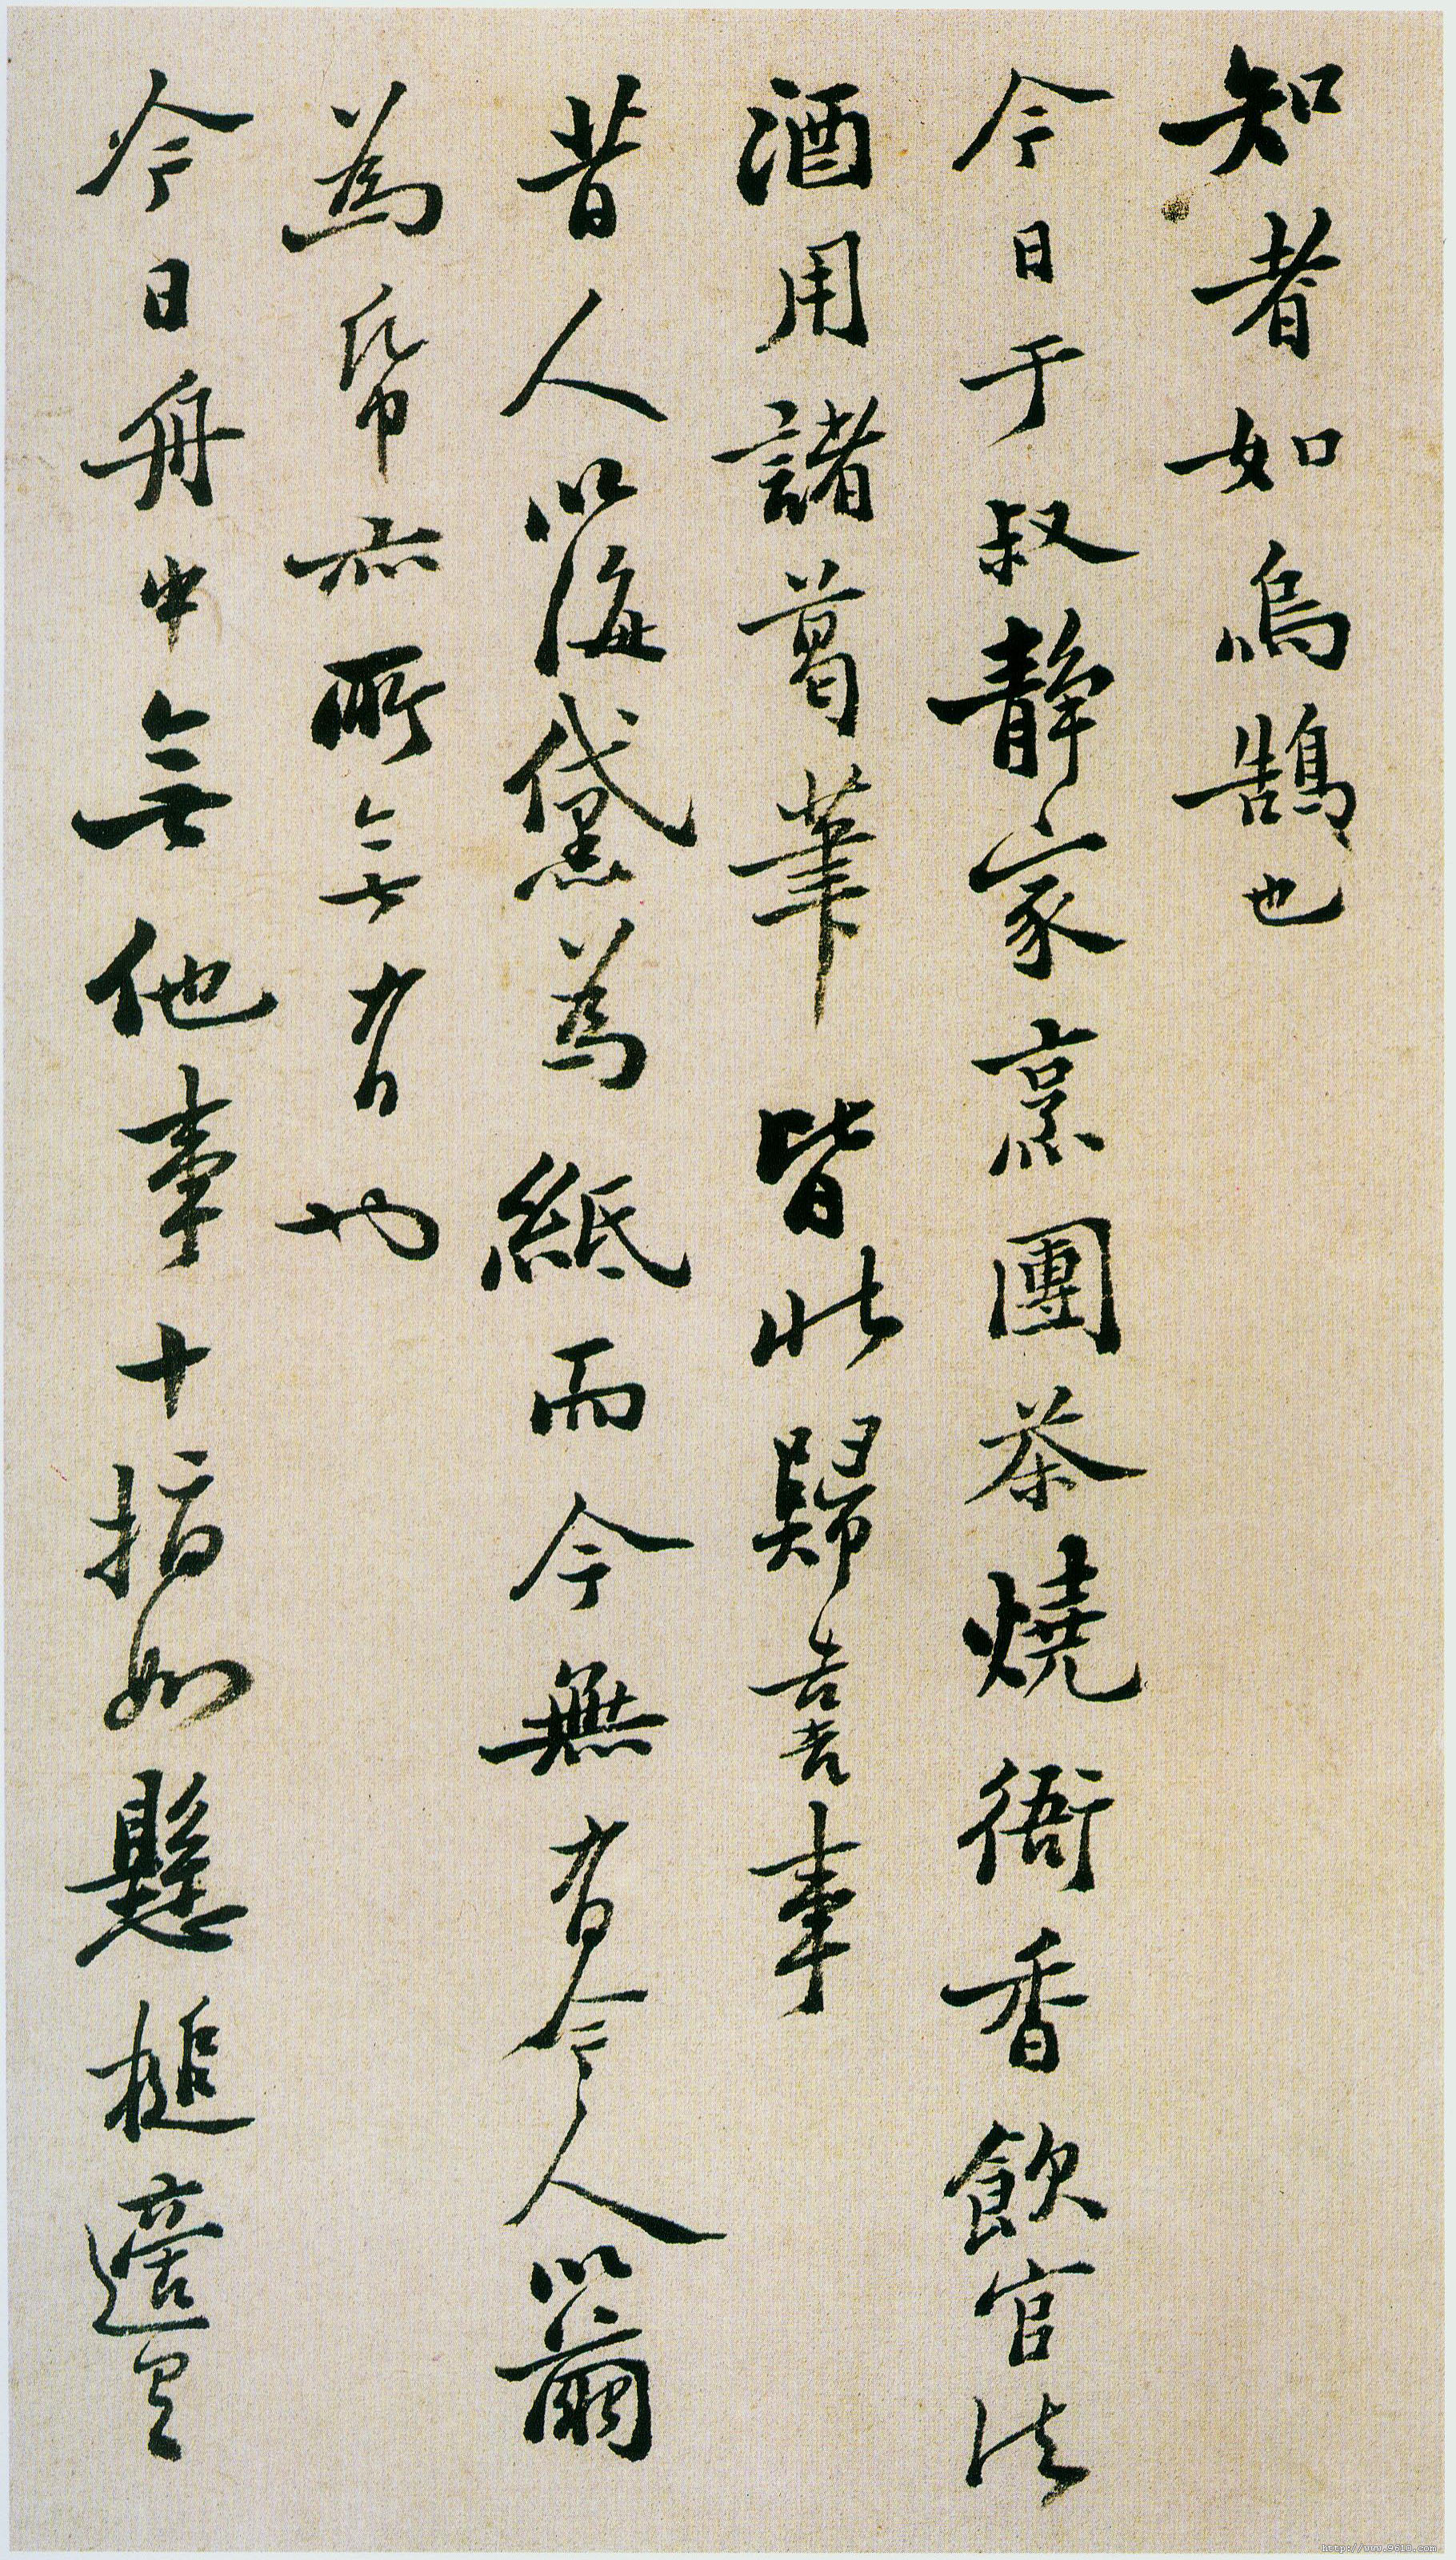 知者如烏鵠也
今日于叔靜家烹團茶燒衙香飲官法
酒用諸葛筆皆北歸喜事
昔人以海黛為紙而今無有今人以繭
為帋亦所無有也
今日舟中無他事十指如懸槌適
http://www.9610.com